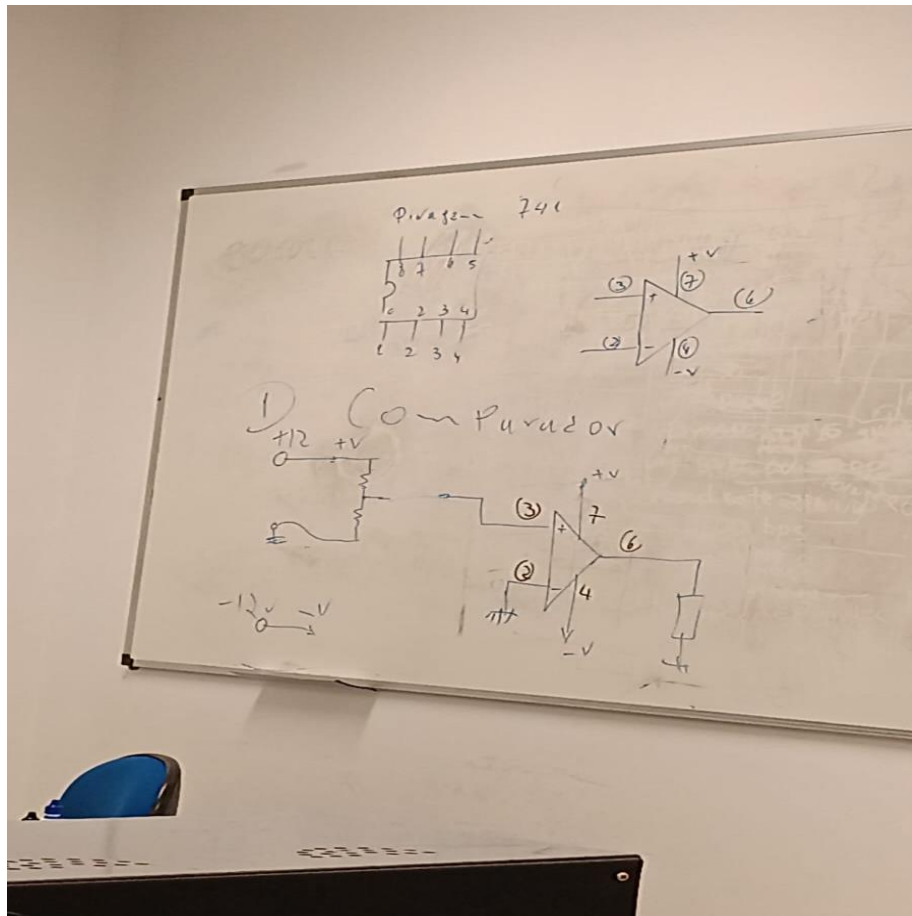 Pinagem 741
8 7 6 5
2 3 4
1 2 3 4
+V
(3) + (7) (6)
(2) - (4)
-V
1) Comparador
+12 +V
+V
(3) + 7 (6)
(2) - 4
-12V -V
-V